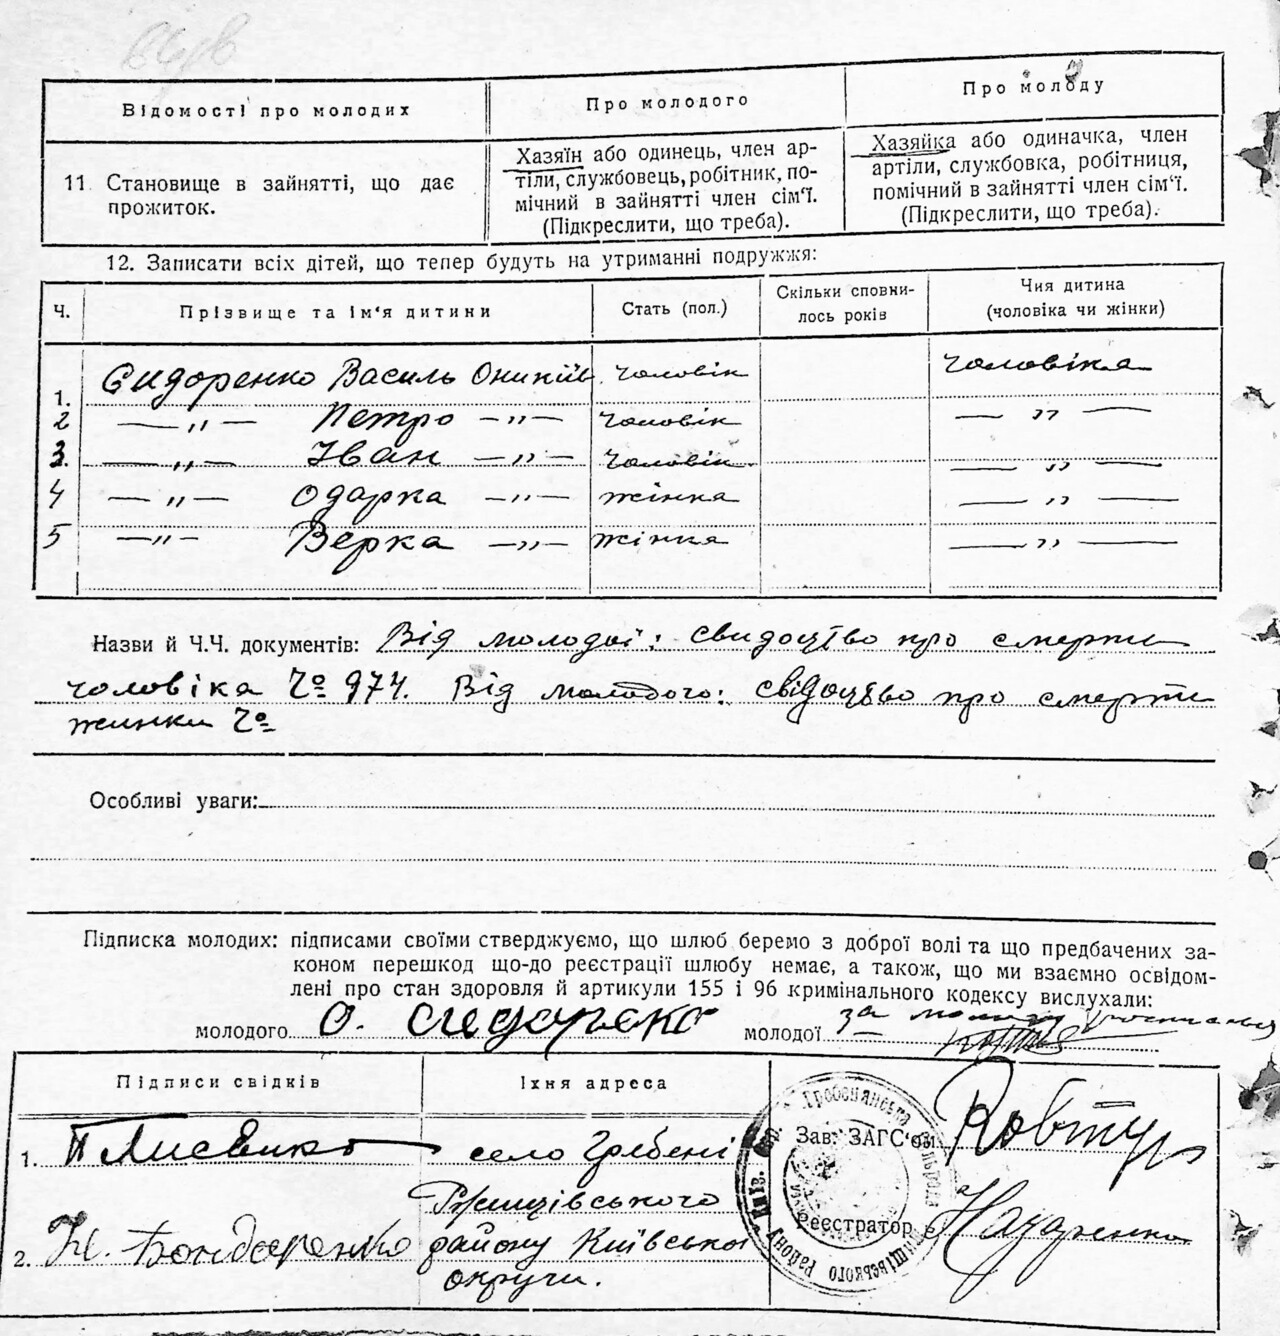 Відомості про молодих
Про молодого
Про молоду
11 Становище в зайнятті, що дає
прожиток.
Хазяїн або одинець, член ар-
тіли, службовець, робітник, по-
мічний в зайнятті член сім'ї.
(Підкреслити, що треба).
Хазяйка або одиначка, член
артіли, службовка, робітниця,
помічний в зайнятті член сім'ї.
(Підкреслити, що треба).
12. Записати всіх дітей, що тепер будуть на утриманні подружжя:
Ч.
Прізвище та ім'я дитини
Стать (пол.)
Скільки сповни-
лось років
Чия дитина
(чоловіка чи жінки)
1. Сидоренко Василь Оникіїв чоловік чоловіка
2 — „ — Петро — „ — чоловік — „ —
3. — „ — Іван — „ — чоловік — „ —
4 — „ — Одарка — „ — жінка — „ —
5 — „ — Верка — „ — жінка — „ —
Назви й Ч.Ч. документів: Від молодої: свидоцтво про смерти
чоловіка Ч° 974. Від молодого: свідоцтво про смерти
жинки Ч°
Особливі уваги:
Підписка молодих: підписами своїми стверджуємо, що шлюб беремо з доброї волі та що предбачених за-
коном перешкод що-до реєстрації шлюбу немає, а також, що ми взаємно освідом-
лені про стан здоровля й артикули 155 і 96 кримінального кодексу вислухали:
молодого О. Сидоренко молодої за
Підписи свідків
Їхня адреса
1. П Лисенко
село Гребені
Ржищівського
2. Н. Бондаренко
району Київської
округи.
Зав. ЗАГС'ом Ковтун
Реєстратор Назаренко